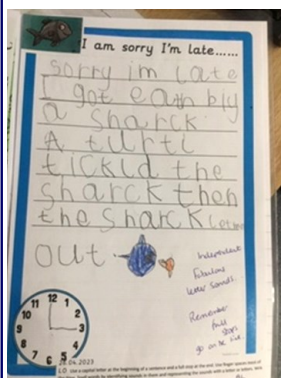 I am sorry I'm late......
sorry im late
I got eatn bly
a sharck
A turtl
tickld the
sharck then
the sharck let me
out
Independent
Fabulous
letter sounds.
Remember
full
stops
go on the line.
12
11 1
10 2
9 3
8 4
7 6 5
.04.2023
L.O Use a capital letter at the beginning of a sentence and a full stop at the end.